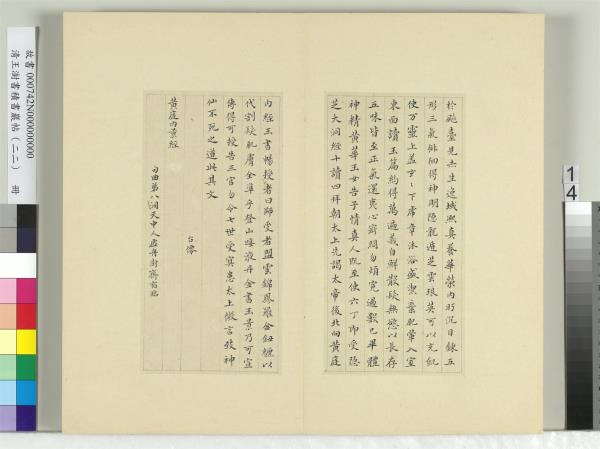 於琬臺見赤生逸域熙真養華榮內盻沉目鍊五
形三氣徘徊得神明隱龍遁芝雲琅英可以充飢
使万靈上蓋玄玄下虎章沐浴盛潔棄肥薰入室
東向誦玉篇約得萬遍義自鮮散髮無慾以長存
五味皆至正氣還夷心寂悶勿煩冤過數已畢體
神精黃華玉女告子情真人既至使六丁即受隱
芝大洞經十讀四拜朝太上先謁太帝後北向黃庭
內經玉書暢授者曰師受者盟雲錦鳳羅金鈕纏以
代割髮肌膚全攜手登山歃液丹金書玉景乃可宣
傳得可授告三官勿令七世受冥患太上微言致神
仙不死之道此其文
台儒
黃庭內景經
句曲第八洞天中人虛舟澍齋沐臨
故書 000742N000000000
清王澍書積書巖帖(二二) 冊
14